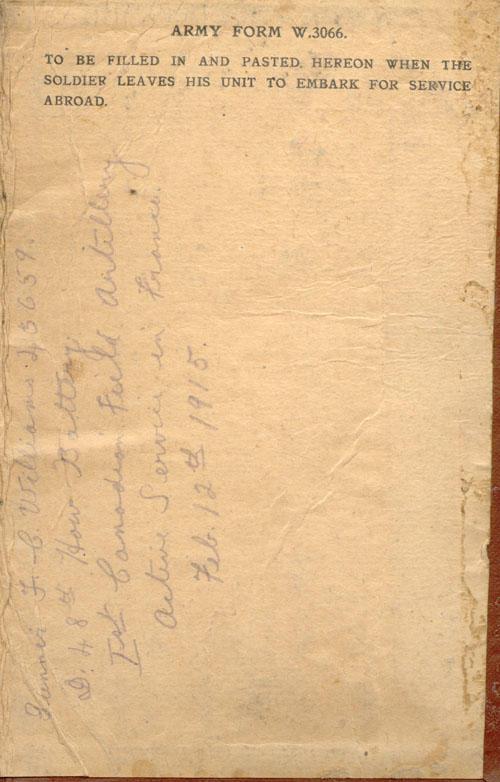 ARMY FORM W.3066.
TO BE FILLED IN AND PASTED HEREON WHEN THE
SOLDIER LEAVES HIS UNIT TO EMBARK FOR SERVICE
ABROAD.
Gunner F. C. Williams 43659.
D. 48th How Battery
1st Canadian Field Artillery
Active Service in France.
Feb. 12th 1915.